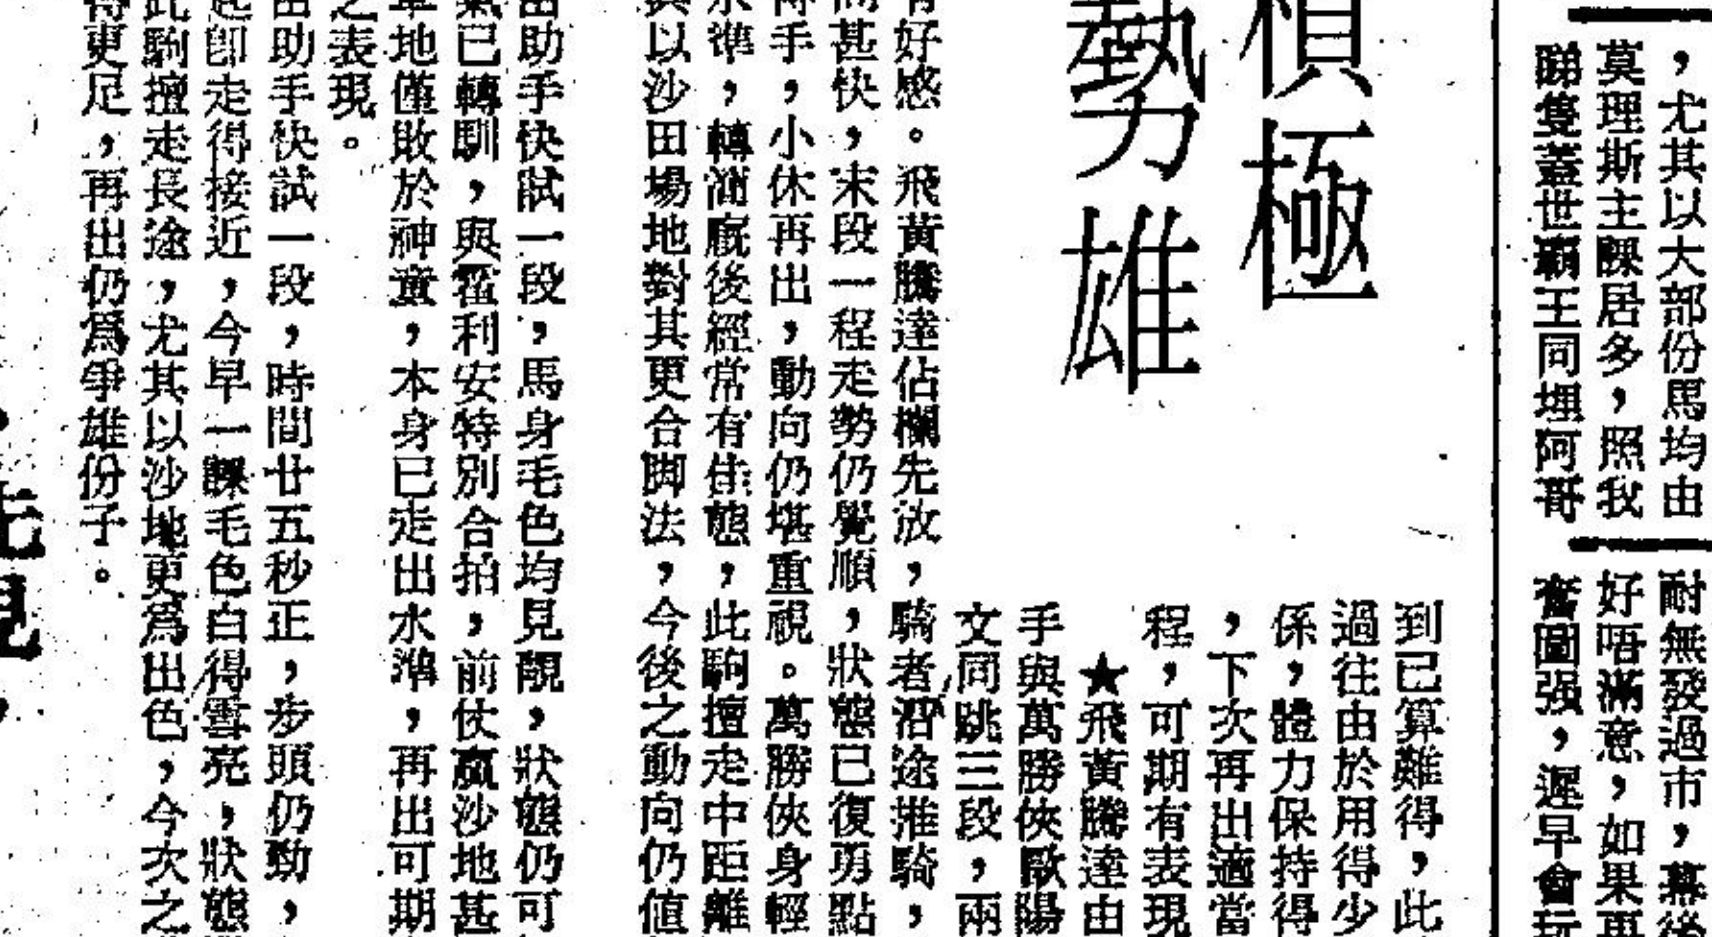 ，尤其以大部份馬均由
莫理斯主課居多，照我
睇隻蓋世霸王同埋阿哥
耐無發過市，幕後
好唔滿意，如果再
奮圖强，遲早會玩
積極
勢雄
到已算難得，此
過往由於用得少
係，體力保持得
，下次再出適當
程，可期有表現
★飛黃騰達由
手與萬勝俠歐陽
文同跳三段，兩
有好感。飛黃騰達佔欄先放，騎者沿途推騎，
甚快，末段一程走勢仍覺順，狀態已復勇點
手，小休再出，動向仍堪重視。萬勝俠身輕
水準，轉廄後經常有佳態，此駒擅走中距離
與以沙田場地對其更合脚法，今後之動向仍值
由助手快試一段，馬身毛色均見靚，狀態仍可
氣已轉馴，與霍利安特別合拍，前仗贏沙地甚
草地僅敗於神童，本身已走出水準，再出可期
之表現。
由助手快試一段，時間廿五秒正，步頭仍勁，
起卽走得接近，今早一課毛色白得雪亮，狀態
此駒擅走長途，尤其以沙地更爲出色，今次之
得更足，再出仍爲爭雄份子。